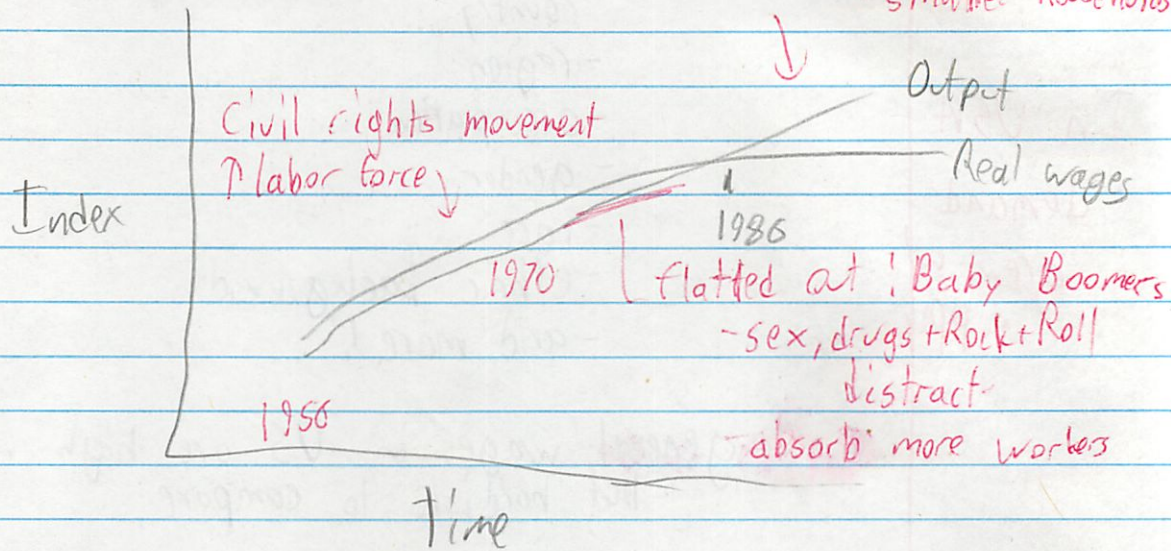 smaller households
Output
Civil rights movement
↑ labor force
Real wages
Index
1986
1970
flatted out! Baby Boomers
- sex, drugs + Rock + Roll
distract
1950
- absorb more workers
Time